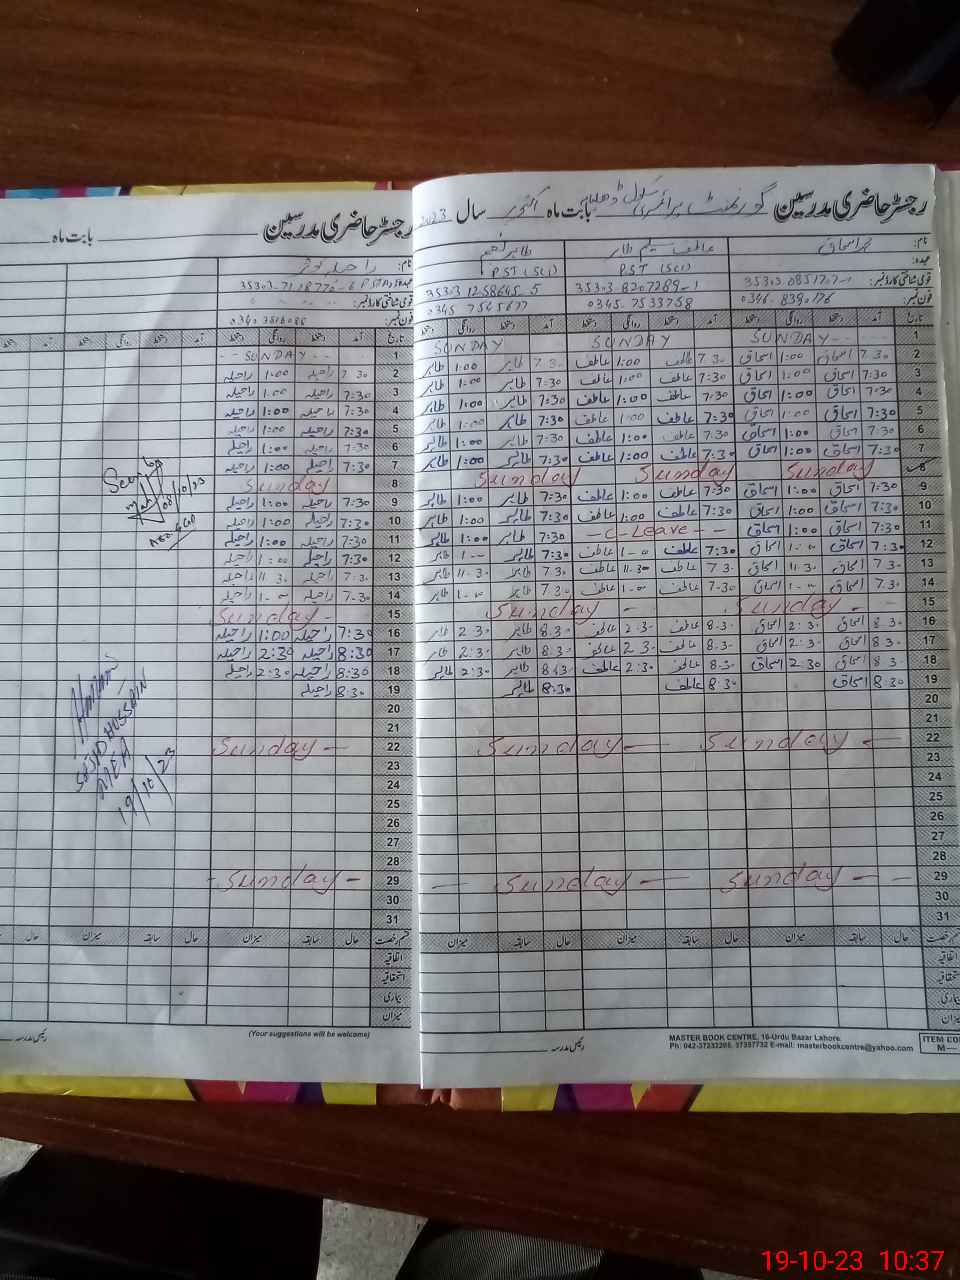 رجسٹر حاضری مدرسین گورنمنٹ پرائمری سکول بابت ماہ اکتوبر سال 2023
نام: محمد اسحاق عاطف سلیم طاہر
عہدہ: PST (Sci) PST (Sci)
قومی شناختی کارڈ نمبر: 35303 35303-8207289-1 35303 1258645-5
فون نمبر: 0346-8390176 0345-7533758 0345 7545677
تاریخ آمد دستخط روانگی دستخط آمد دستخط روانگی دستخط آمد دستخط روانگی دستخط
1 SUNDAY SUNDAY SUNDAY
2 7.30 اسحاق 1:00 اسحاق 7.30 عاطف 1:00 عاطف 7.30 طاہر 1:00 طاہر
3 7:30 اسحاق 1:00 اسحاق 7:30 عاطف 1:00 عاطف 7:30 طاہر 1:00 طاہر
4 7:30 اسحاق 1:00 اسحاق 7:30 عاطف 1:00 عاطف 7:30 طاہر 1:00 طاہر
5 7:30 اسحاق 1:00 اسحاق 7:30 عاطف 1:00 عاطف 7:30 طاہر 1:00 طاہر
6 7:30 اسحاق 1:00 اسحاق 7:30 عاطف 1:00 عاطف 7:30 طاہر 1:00 طاہر
7 7:30 اسحاق 1:00 اسحاق 7:30 عاطف 1:00 عاطف 7:30 طاہر 1:00 طاہر
8 Sunday Sunday Sunday
9 7:30 اسحاق 1:00 اسحاق 7:30 عاطف 1:00 عاطف 7:30 طاہر 1:00 طاہر
10 7:30 اسحاق 1:00 اسحاق 7:30 عاطف 1:00 عاطف 7:30 طاہر 1:00 طاہر
11 7:30 اسحاق 1:00 اسحاق - C-Leave - - 7:30 طاہر 1:00 طاہر
12 7:30 اسحاق 1-00 اسحاق 7:30 عاطف 1-00 عاطف 7:30 طاہر 1-00 طاہر
13 7.30 اسحاق 11.30 اسحاق 7.30 عاطف 11.30 عاطف 7.30 طاہر 11.30 طاہر
14 7.30 اسحاق 1-00 اسحاق 7-30 عاطف 1-00 عاطف 7.30 طاہر 1-00 طاہر
15 Sunday - Sunday -
16 8.30 اسحاق 2:30 اسحاق 8.30 عاطف 2:30 عاطف 8.30 طاہر 2:30 طاہر
17 8.30 اسحاق 2:30 اسحاق 8.30 عاطف 2:30 عاطف 8.30 طاہر 2:30 طاہر
18 8.30 اسحاق 2:30 اسحاق 8.30 عاطف 2:30 عاطف 8:30 طاہر 2:30 طاہر
19 8:30 اسحاق 8:30 عاطف 8:30 طاہر
20
21
22 Sunday — Sunday —
23
24
25
26
27
28
29 — Sunday — Sunday — -
30
31
قسم رخصت حال سابقہ میزان حال سابقہ میزان حال سابقہ میزان
اتفاقیہ
استحقاقیہ
بیماری
میزان
رئیس مدرسہ
MASTER BOOK CENTRE, 16-Urdu Bazar Lahore.
Ph: 042-37232265, 37357732 E-mail: masterbookcentre@yahoo.com
ITEM CO
M—
رجسٹر حاضری مدرسین بابت ماہ
نام: راحیلہ کوثر
عہدہ:
قومی شناختی کارڈ نمبر: 35303-7118770-6
فون نمبر: 0340
تاریخ آمد دستخط روانگی دستخط آمد دستخط روانگی دستخط
1 -- SUNDAY --
2 7.30 راحیلہ 1:00 راحیلہ
3 7:30 راحیلہ 1:00 راحیلہ
4 7:30 راحیلہ 1:00 راحیلہ
5 7:30 راحیلہ 1:00 راحیلہ
6 7:30 راحیلہ 1:00 راحیلہ
7 7:30 راحیلہ 1:00 راحیلہ
8 Sunday
9 7:30 راحیلہ 1:00 راحیلہ
10 7:30 راحیلہ 1:00 راحیلہ
11 7:30 راحیلہ 1:00 راحیلہ
12 7:30 راحیلہ 1:00 راحیلہ
13 7.30 راحیلہ 11.30 راحیلہ
14 7.30 راحیلہ 1-00 راحیلہ
15 Sunday -
16 7:30 راحیلہ 1:00 راحیلہ
17 8:30 راحیلہ 2:30 راحیلہ
18 8:30 راحیلہ 2:30 راحیلہ
19 8:30 راحیلہ
20
21
22 Sunday —
23
24
25
26
27
28
29 - Sunday -
30
31
قسم رخصت حال سابقہ میزان حال سابقہ میزان حال
اتفاقیہ
استحقاقیہ
بیماری
میزان
(Your suggestions will be welcome)
رئیس مدرسہ
SAJID HUSSAIN
MEA
19/10/23
19-10-23 10:37